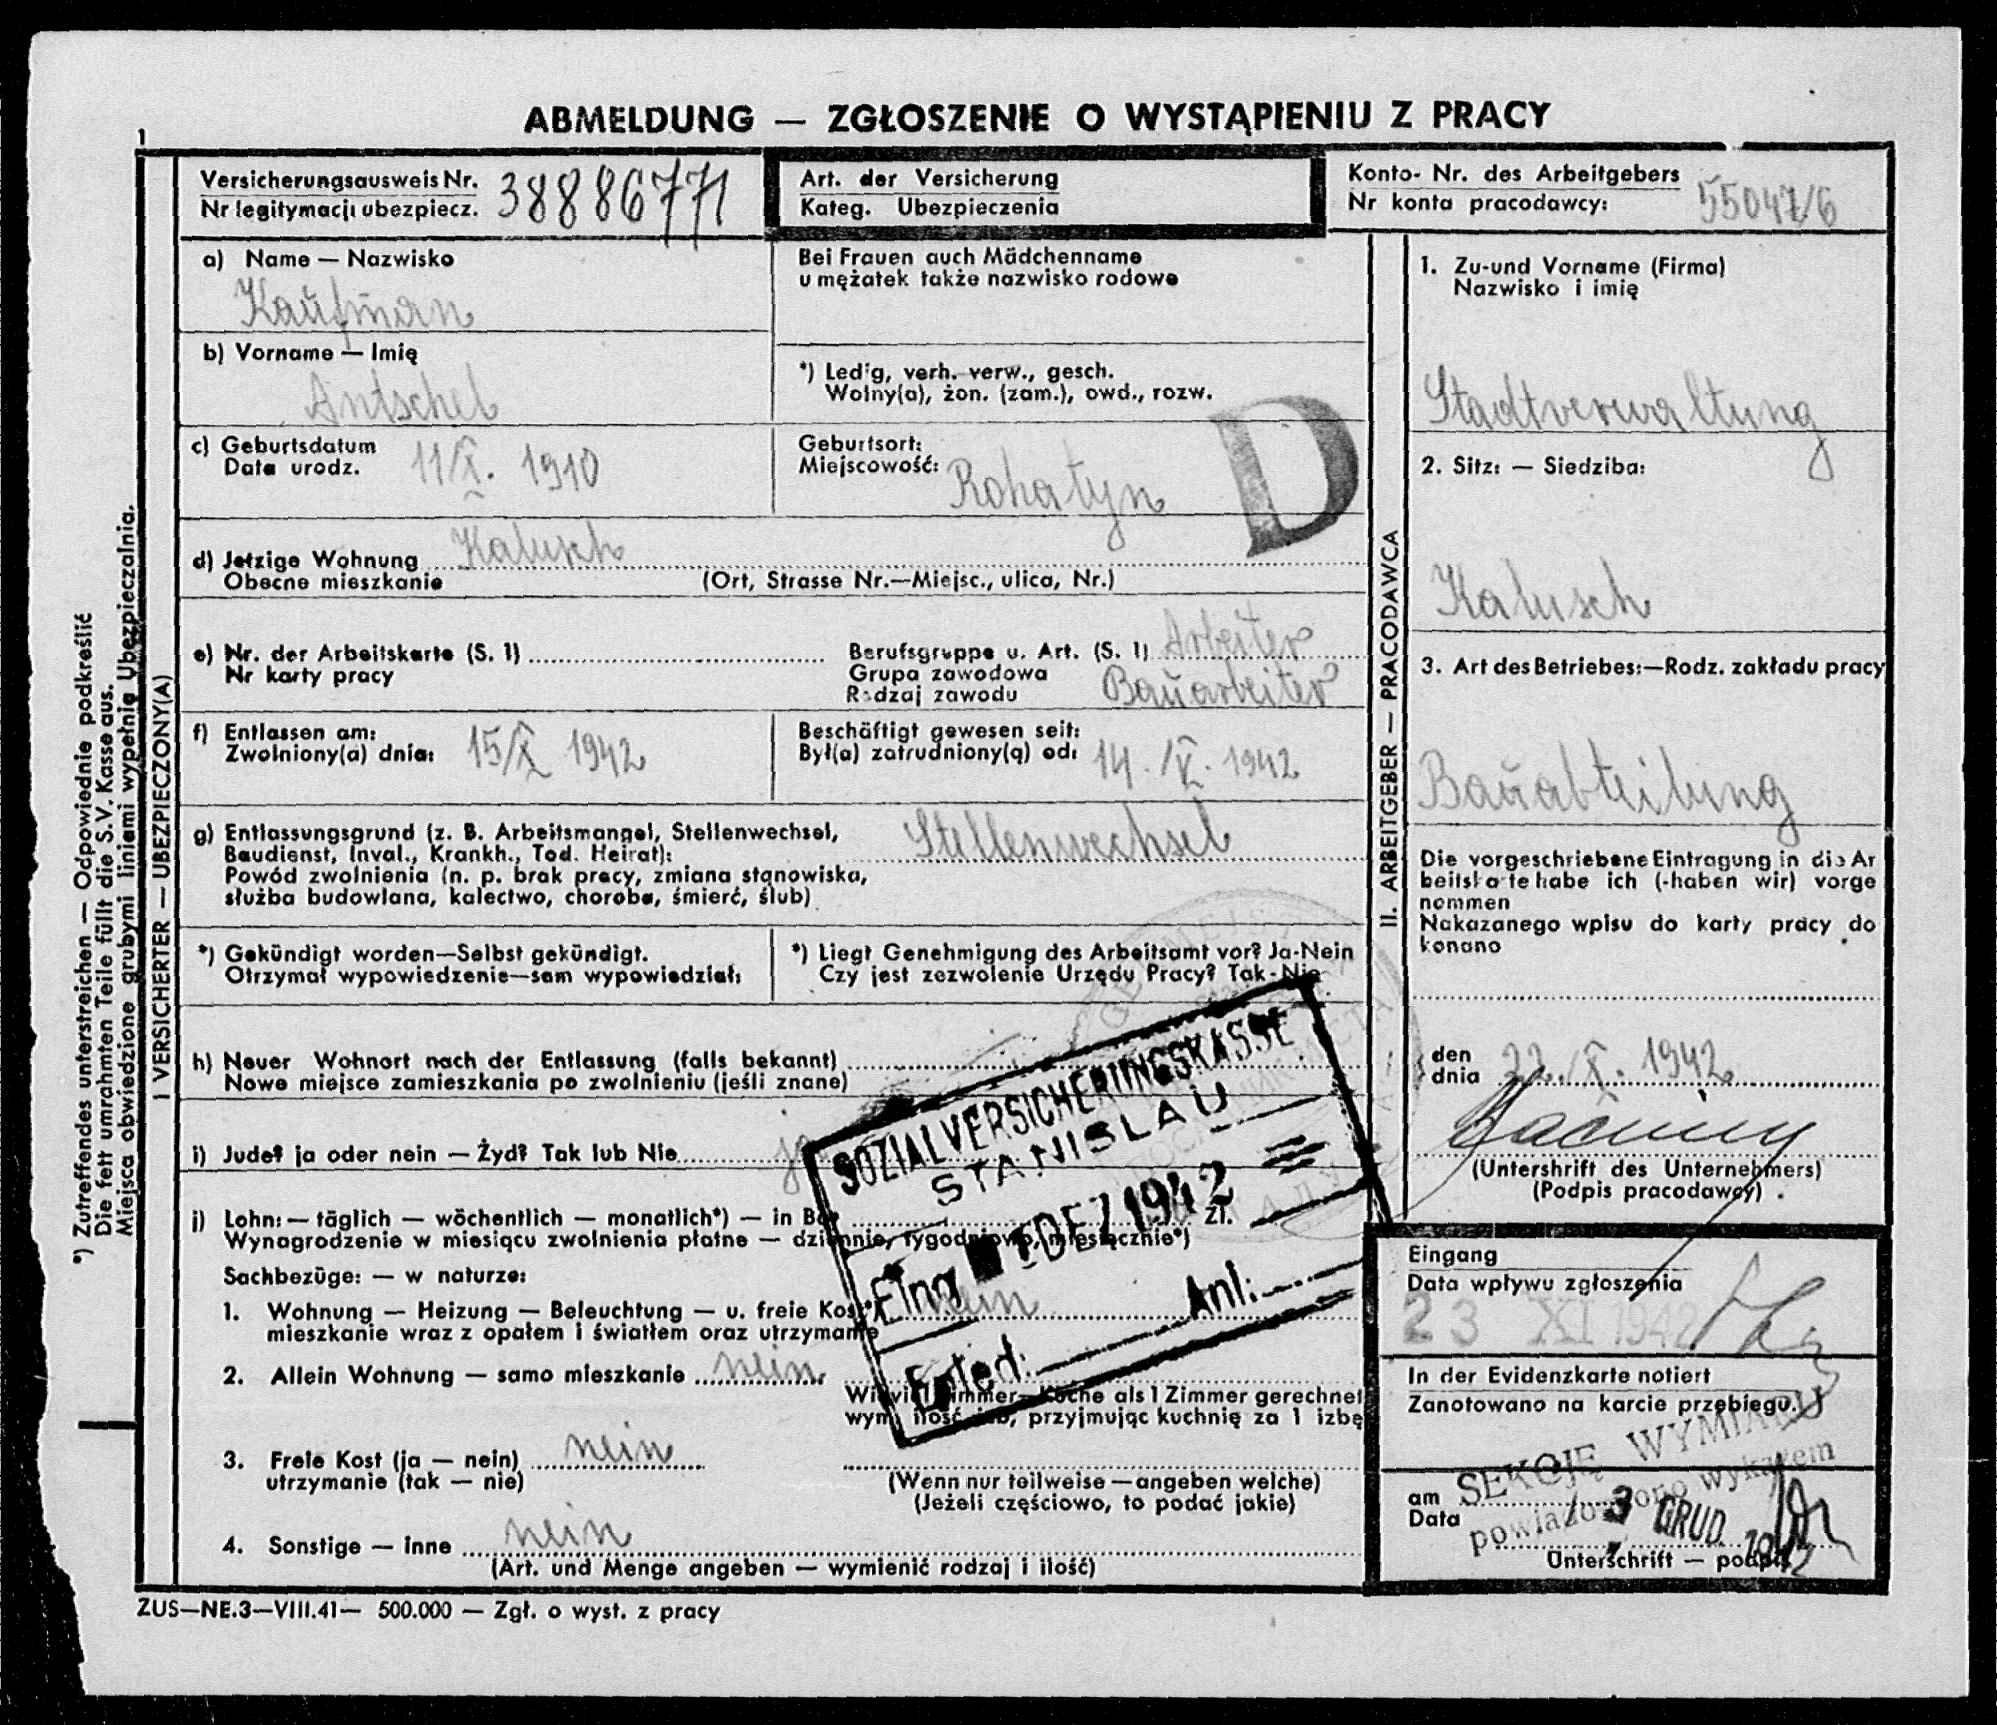 ABMELDUNG — ZGŁOSZENIE O WYSTĄPIENIU Z PRACY
1
Versicherungsausweis Nr. 38886771
Nr legitymacji ubezpiecz.
Art. der Versicherung
Kateg. Ubezpieczenia
Konto- Nr. des Arbeitgebers
Nr konta pracodawcy: 55047/6
*) Zutreffendes unterstreichen — Odpowiednie podkreślić
Die fett umrahmten Teile füllt die S.V. Kasse aus.
Miejsca obwiedzione grubymi liniami wypełnia Ubezpieczalnia.
I VERSICHERTER — UBEZPIECZONY(A)
a) Name — Nazwisko
Kaufman
Bei Frauen auch Mädchenname
u mężatek także nazwisko rodowe
b) Vorname — Imię
Antschel
*) Ledig, verh. verw., gesch.
Wolny(a), żon. (zam.), owd., rozw.
D
c) Geburtsdatum
Data urodz. 11/X. 1910
Geburtsort:
Miejscowość: Rohatyn
d) Jetzige Wohnung Kalusch
Obecne mieszkanie (Ort, Strasse Nr.—Miejsc., ulica, Nr.)
e) Nr. der Arbeitskarte (S. 1)
Nr karty pracy
Berufsgruppe u. Art. (S. 1) Arbeiter
Grupa zawodowa
Rodzaj zawodu Bauarbeiter
f) Entlassen am:
Zwolniony(a) dnia: 15/X 1942
Beschäftigt gewesen seit:
Był(a) zatrudniony(q) od: 14./V. 1942
g) Entlassungsgrund (z. B. Arbeitsmangel, Stellenwechsel,
Baudienst, Inval., Krankh., Tod. Heirat): Stellenwechsel
Powód zwolnienia (n. p. brak pracy, zmiana stanowiska,
służba budowlana, kalectwo, choroba, śmierć, ślub)
*) Gekündigt worden—Selbst gekündigt.
Otrzymał wypowiedzenie—sam wypowiedział:
*) Liegt Genehmigung des Arbeitsamt vor? Ja-Nein
Czy jest zezwolenie Urzędu Pracy? Tak-Nie
h) Neuer Wohnort nach der Entlassung (falls bekannt)
Nowe miejsce zamieszkania po zwolnieniu (jeśli znane)
i) Jude? ja oder nein — Żyd? Tak lub Nie ja
j) Lohn: — täglich — wöchentlich — monatlich*) — in Zł.
Wynagrodzenie w miesiącu zwolnienia płatne — dziennie, tygodniowo, miesięcznie*)
Sachbezüge: — w naturze:
1. Wohnung — Heizung — Beleuchtung — u. freie Kost*) nein
mieszkanie wraz z opałem i światłem oraz utrzymanie
2. Allein Wohnung — samo mieszkanie nein
Zimmer—Küche als 1 Zimmer gerechnet
wym. ilość przyjmując kuchnię za 1 izbę
3. Freie Kost (ja — nein) nein
utrzymanie (tak — nie)
(Wenn nur teilweise — angeben welche)
(Jeżeli częściowo, to podać jakie)
4. Sonstige — inne nein
(Art. und Menge angeben — wymienić rodzaj i ilość)
SOZIALVERSICHERUNGSKASSE
STANISLAU
Eing DEZ 1942
Anl:
Erled:
II. ARBEITGEBER — PRACODAWCA
1. Zu-und Vorname (Firma)
Nazwisko i imię
Stadtverwaltung
2. Sitz: — Siedziba:
Kalusch
3. Art des Betriebes:—Rodz. zakładu pracy
Bauabteilung
Die vorgeschriebene Eintragung in die Ar
beitskarte habe ich (-haben wir) vorge
nommen
Nakazanego wpisu do karty pracy do
konano
den
dnia 22./X. 1942
(Untershrift des Unternehmers)
(Podpis pracodawcy)
Eingang
Data wpływu zgłoszenia
23 XI 1942
In der Evidenzkarte notiert
Zanotowano na karcie przebiegu.
SEKCJĘ WYMIARU
powiadomiono wykazem
am
Data 3 GRUD. 1942
Unterschrift — podpis
ZUS—NE.3—VIII.41— 500.000 — Zgł. o wyst. z pracy